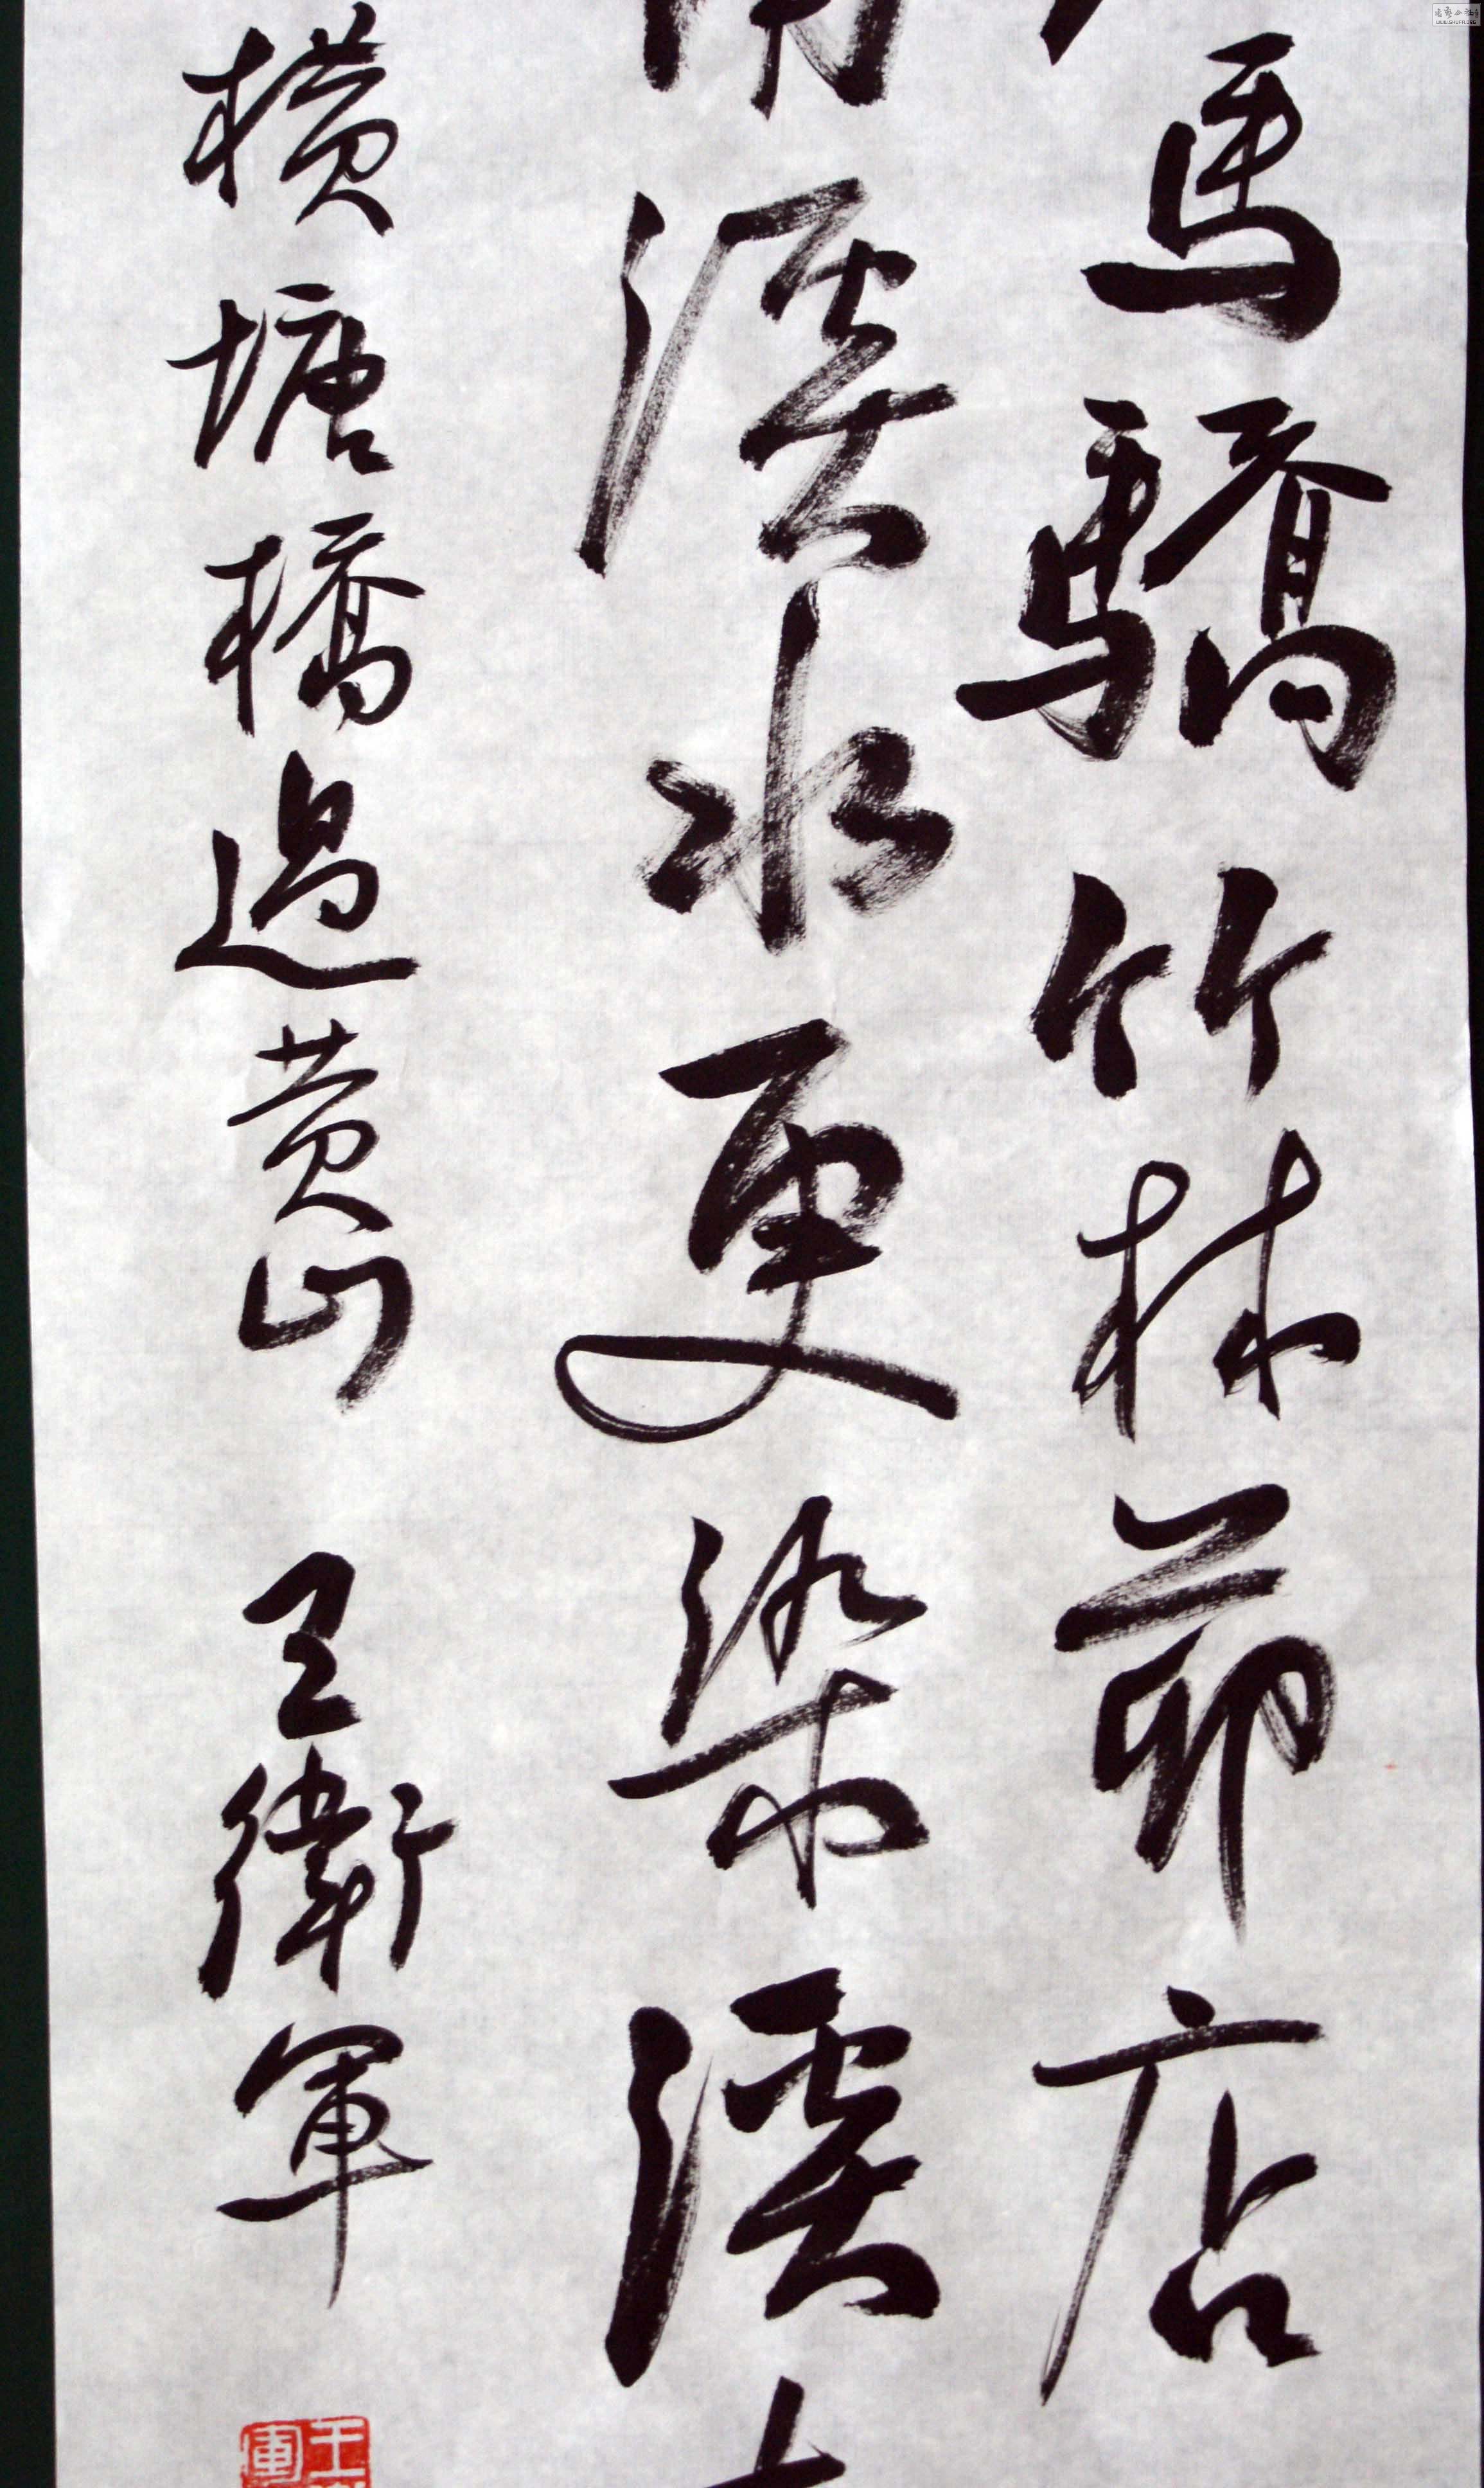 馬驕竹林茆店
溪水更染溪
横塘橋過黄山 王衛軍